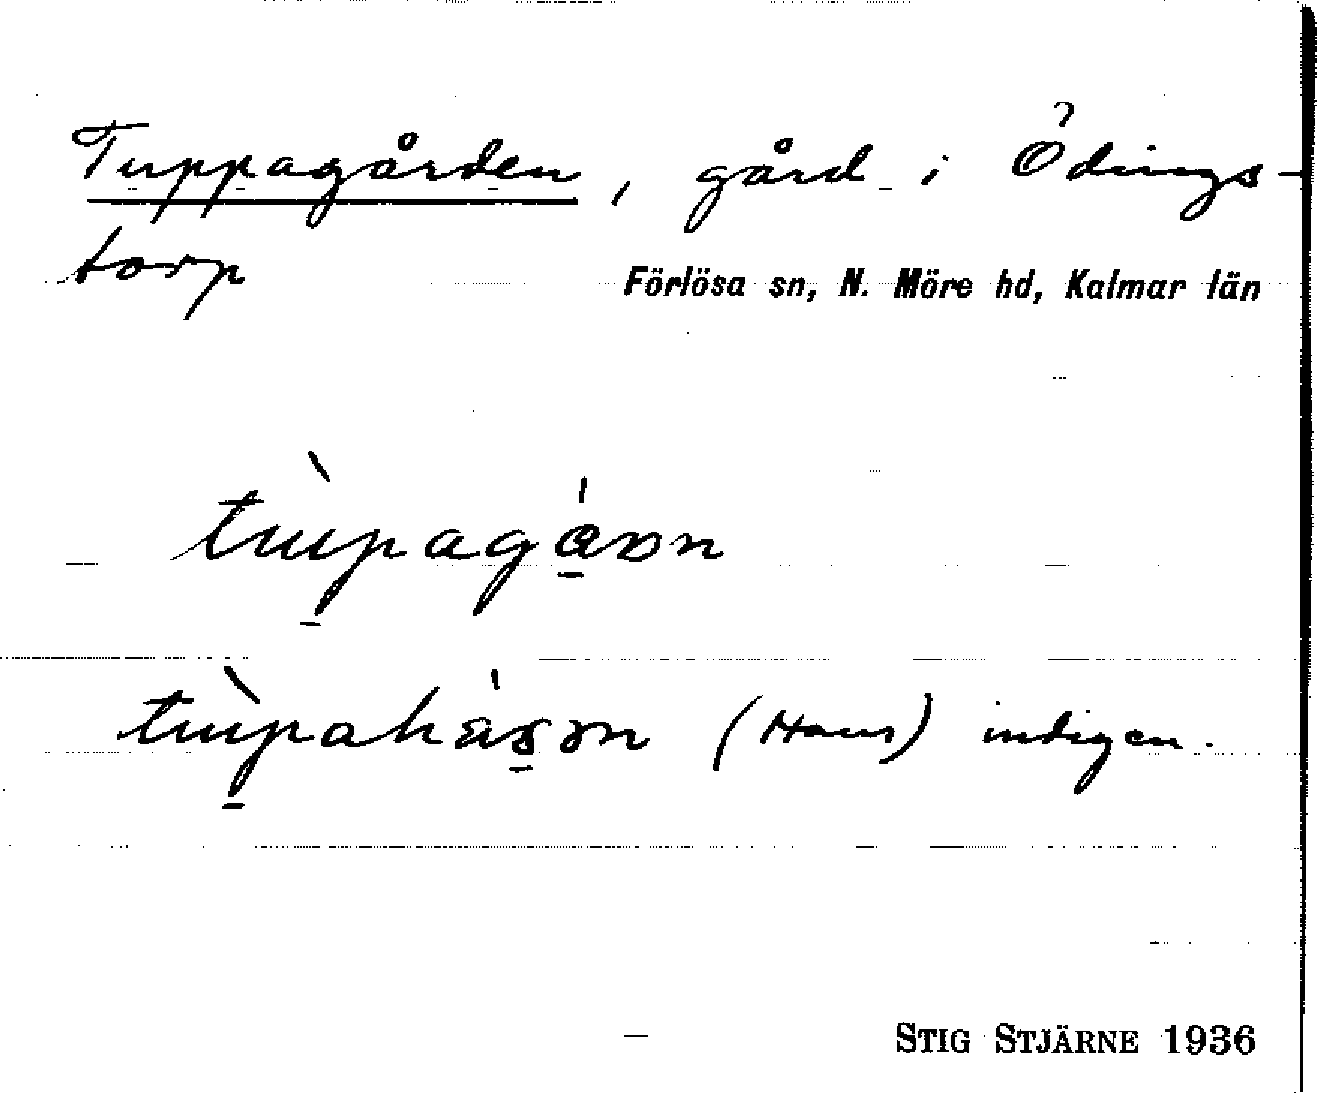 Tuppagården, gård i Ödings-
torp
Förlösa sn, N. Möre hd, Kalmar län
(Hans) indigen.
STIG STJÄRNE 1936